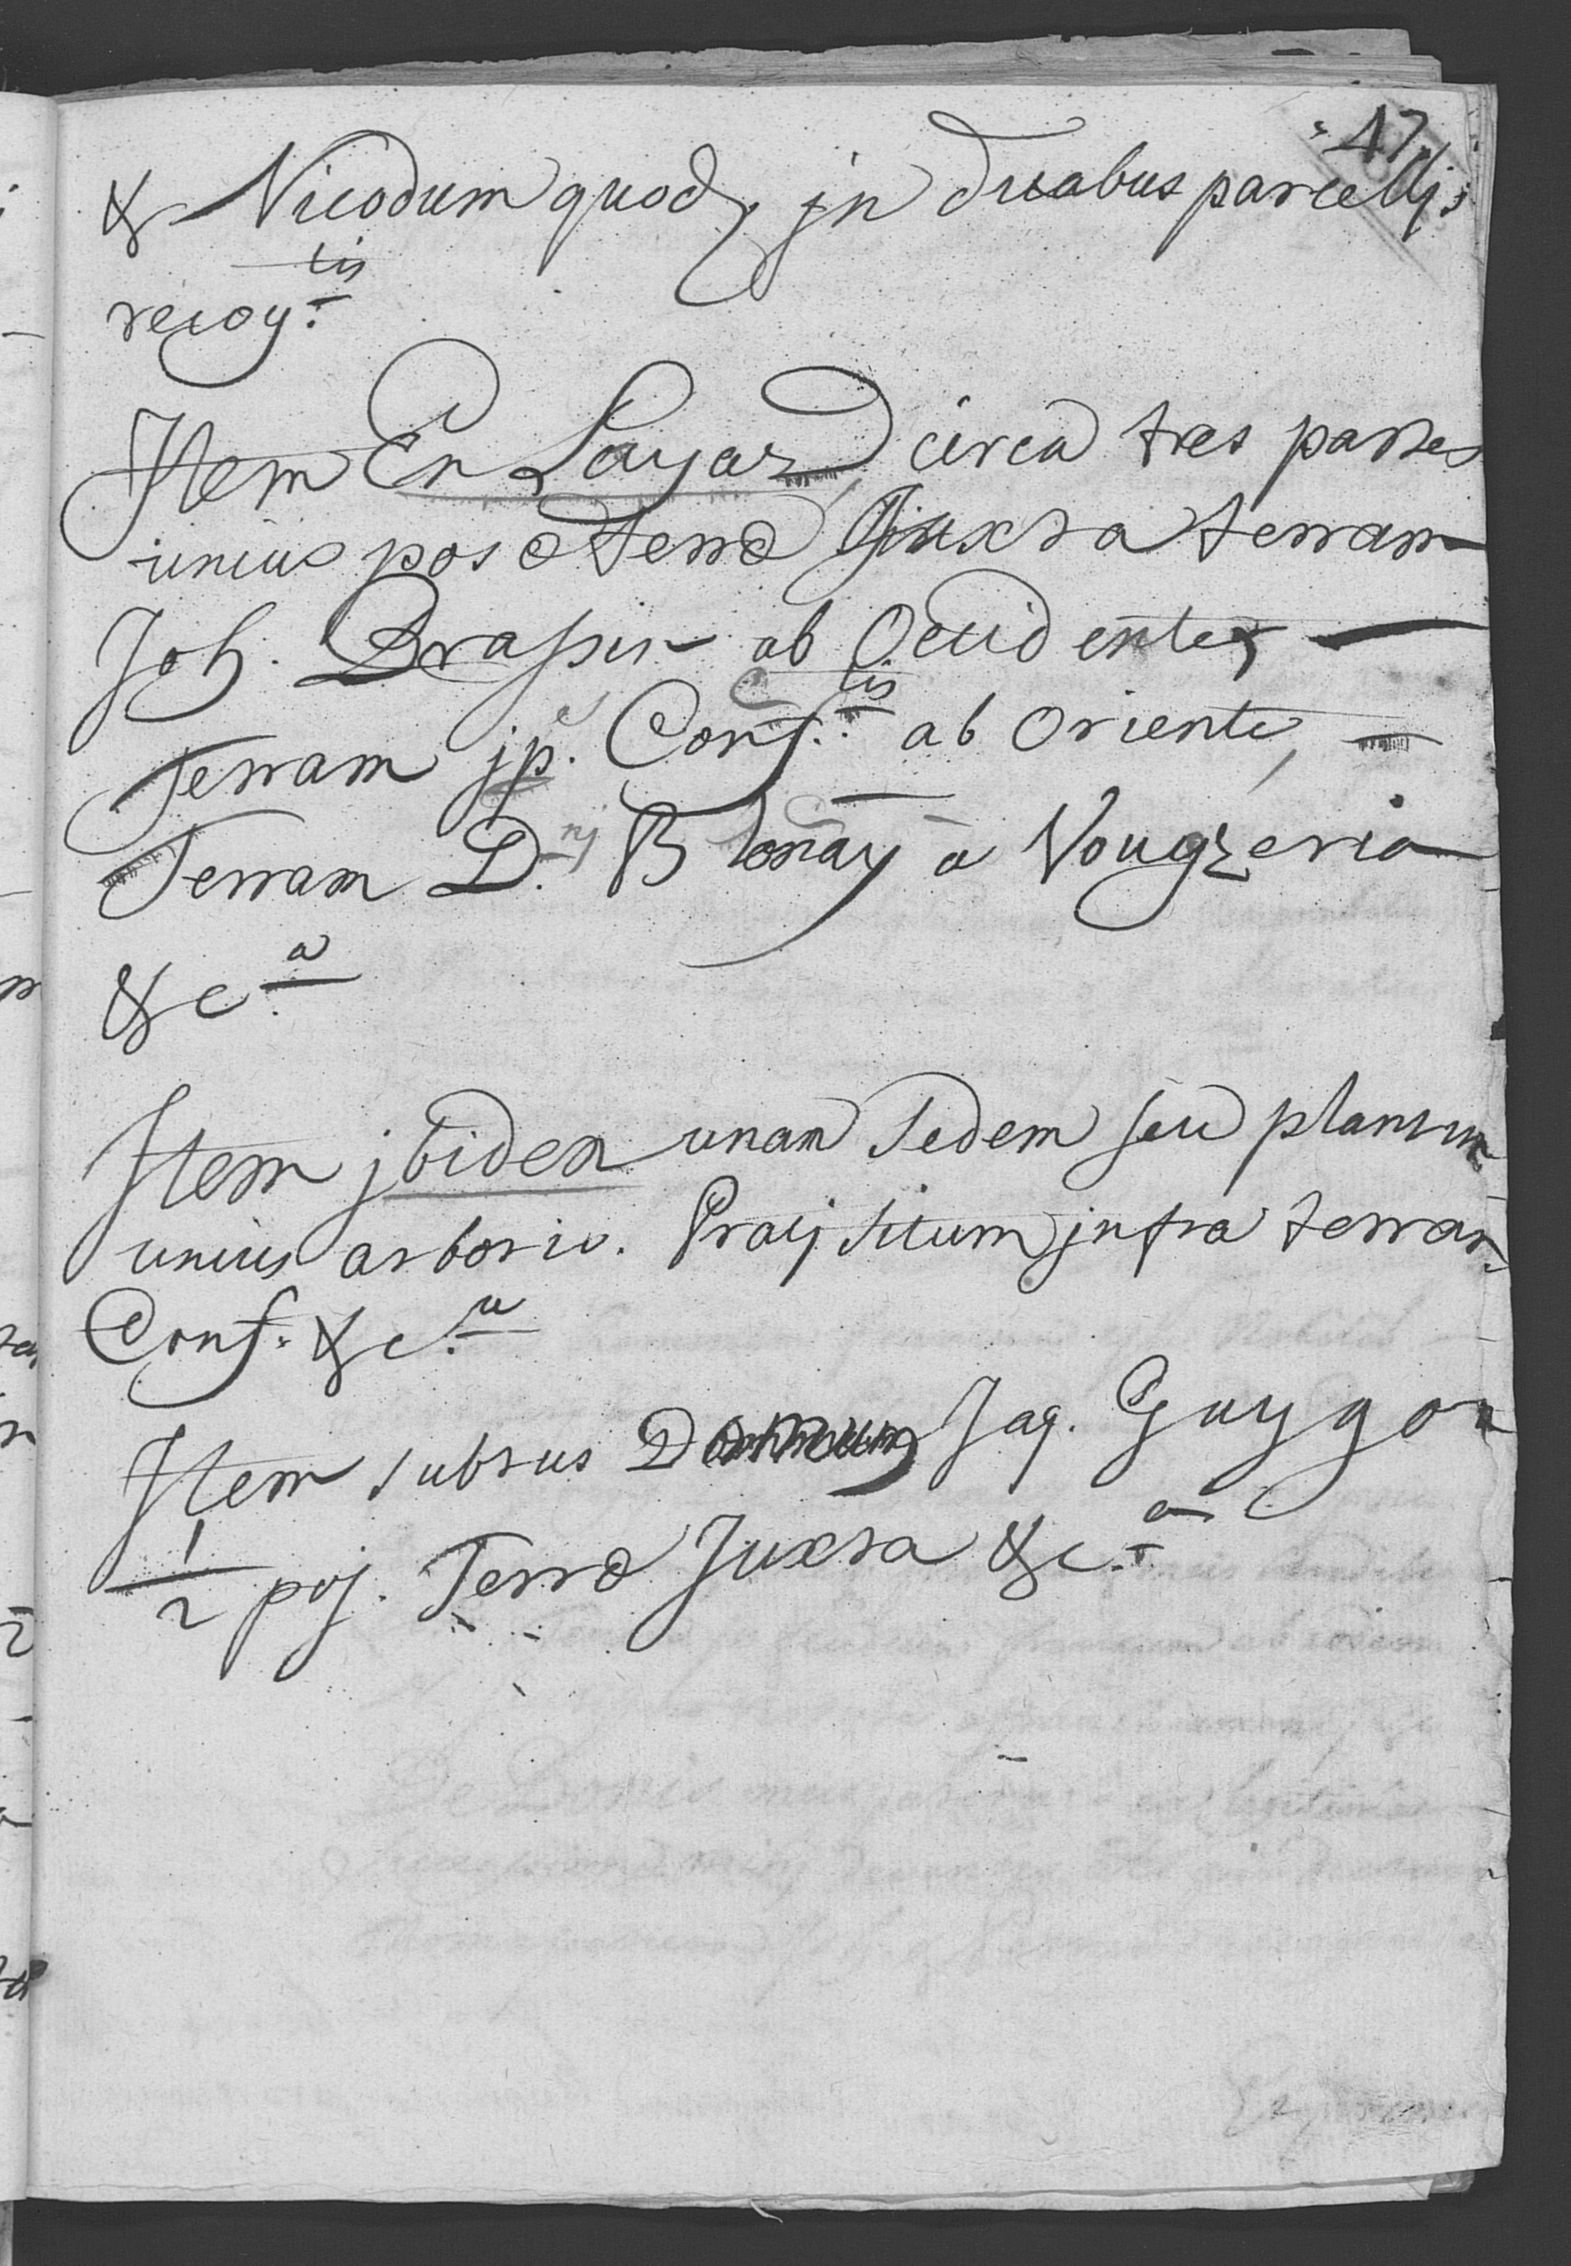 47
& Nicodum quod jn duabus parcellis
recog.tis
Item En Layaz circa tres partes
unius posæ terræ Juxta terram
Joh. Drapier ab Occidente,
Terram jp.e Conf.tis ab Oriente,
Terram D.nj Blonay a Vougzeria
&c.a
Item jbidem unam sedem seu plantum
unius arboris. situm jnfra terram
Conf. &c.a
Item subtus Domum Jaq. Guygoz
1/2 pos. Terræ Juxta &c.a